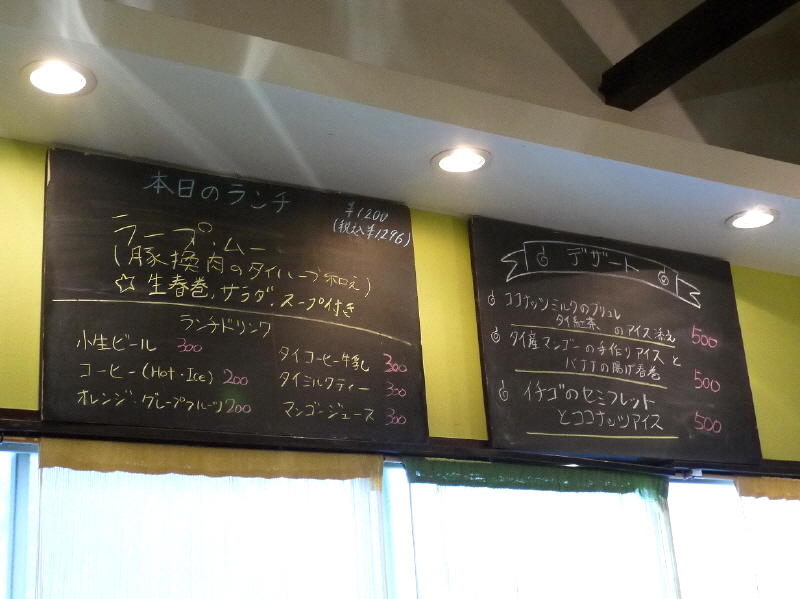 本日のランチ
¥1200
(税込¥1,296)
ラープ・ムー
(豚挽肉のタイハーブ和え)
☆生春巻,サラダ,スープ付き
ランチドリンク
小生ビール 300
コーヒー(Hot・Ice) 200
オレンジ・グレープフルーツ 200
タイコーヒー牛乳 300
タイミルクティー 300
マンゴージュース 300
デザート
ココナッツミルクのブリュレ
タイ紅茶のアイス添え 500
タイ産マンゴーの手作りアイスと
バナナの揚げ春巻 500
イチゴのセミフレット
とココナッツアイス 500